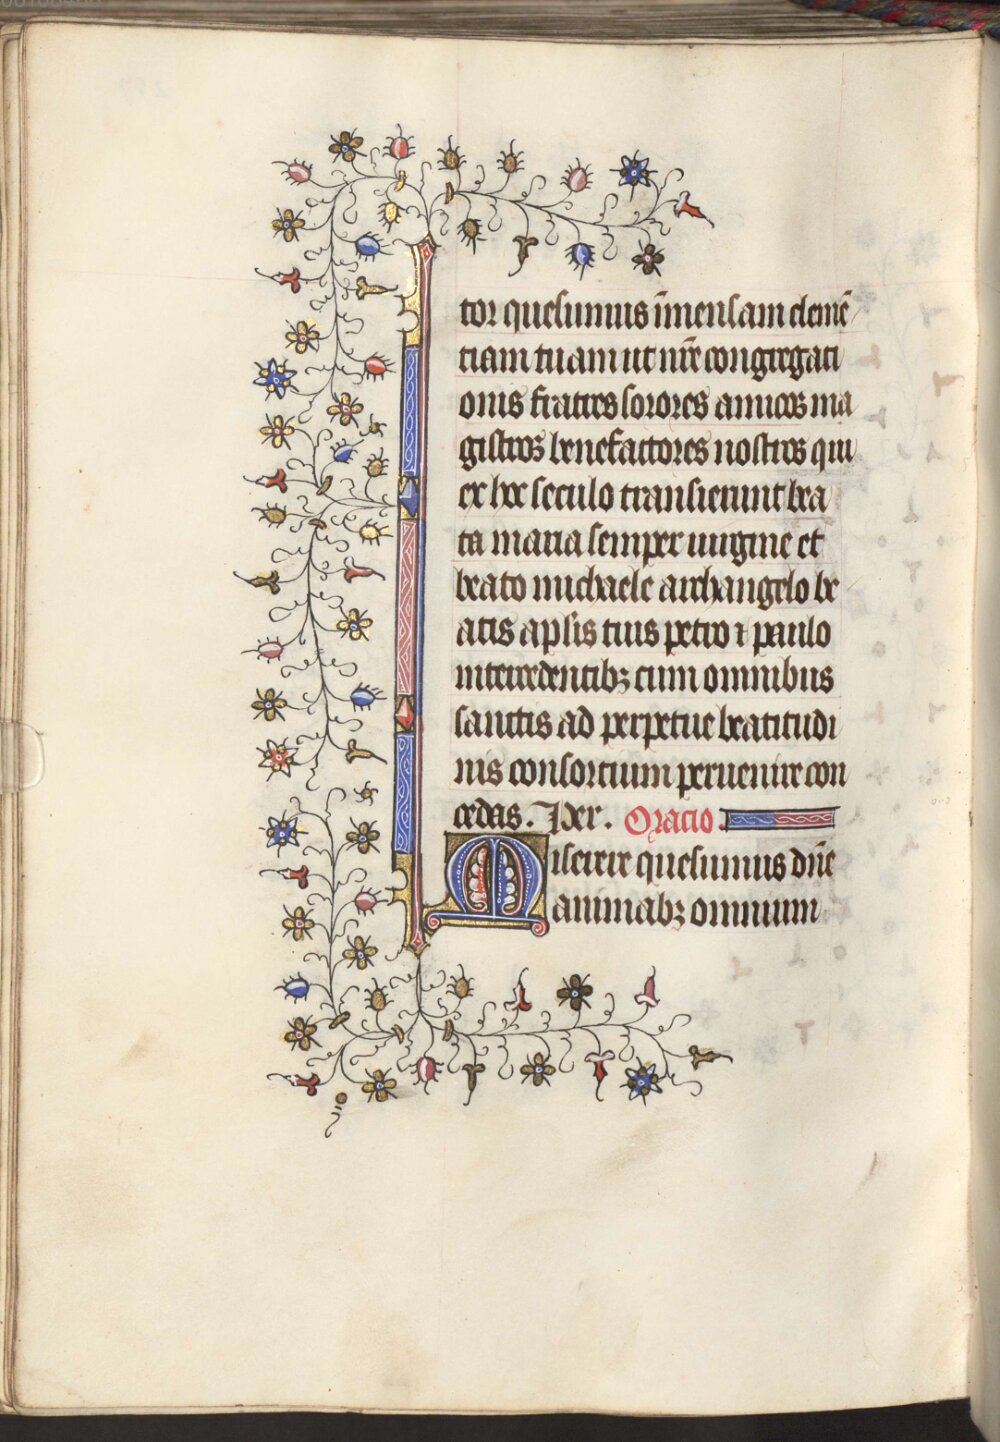 tor quesumus īmensam clemē
tiam tuam ut nr̄e congregati
onis fratres sorores amicos ma
gistros benefactores nostros qui
ex hoc seculo transierunt bea
ta maria semper uirgine et
beato michaele archangelo be
atis ap̄lis tuis petro ⁊ paulo
intercedentibꝫ cum omnibus
sanctis ad perpetue beatitudi
nis consortium peruenire con
cedas. Per. Oracio.
Miserere quesumus dn̄e
animabꝫ omnium